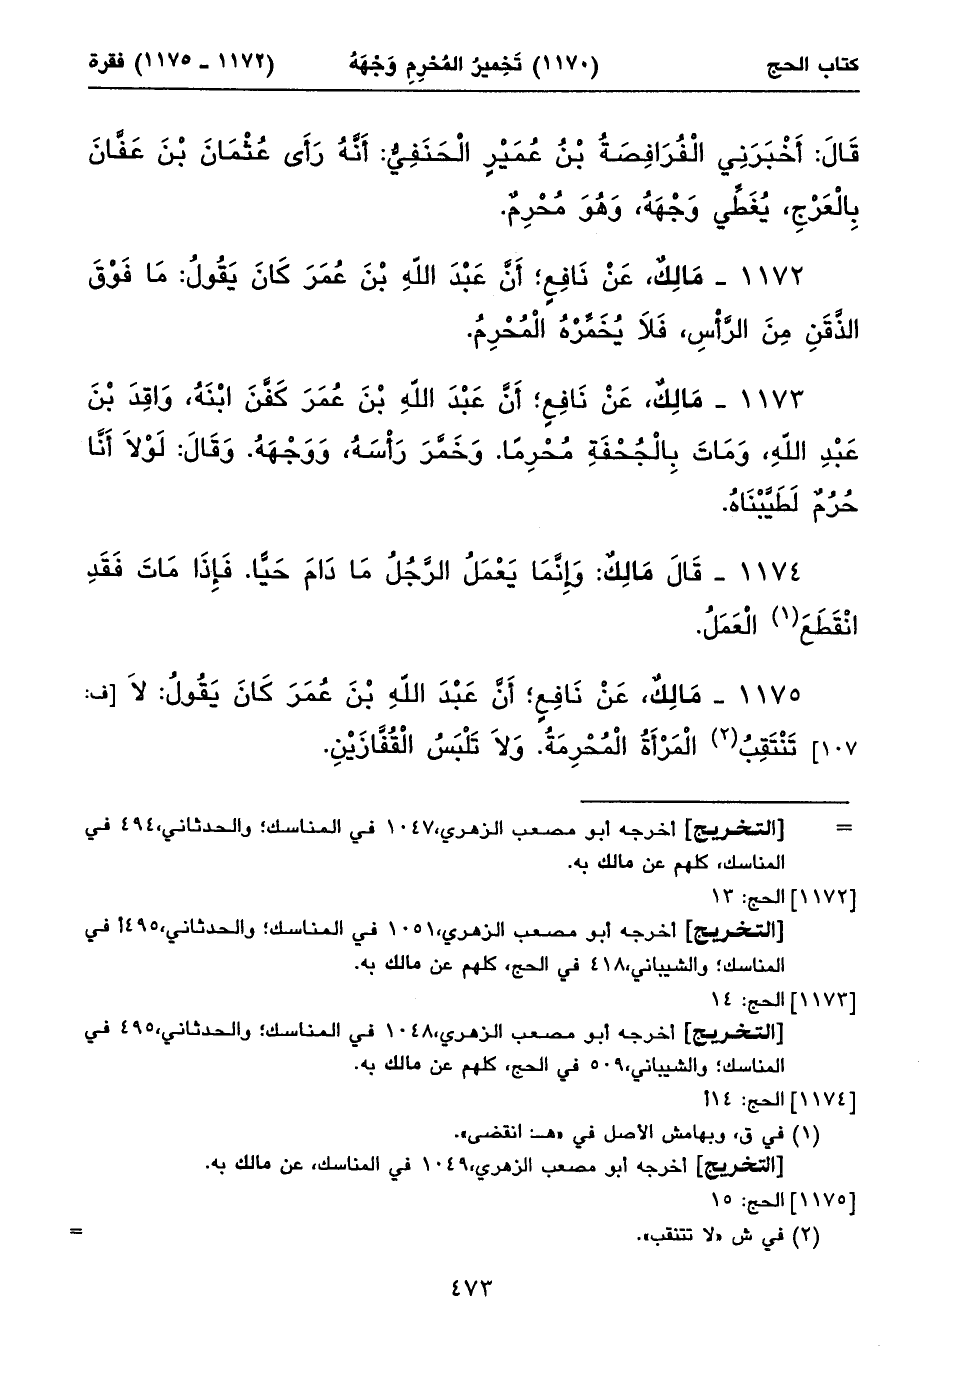 كتاب الحج (١١٧٠) تَخْمِيرُ المُحْرِمِ وَجْهَهُ (١١٧٢ - ١١٧٥) فقرة
قَالَ: أَخْبَرَنِي الْفُرَافِصَةُ بْنُ عُمَيْرٍ الْحَنَفِيُّ: أَنَّهُ رَأَى عُثْمَانَ بْنَ عَفَّانَ
بِالْعَرْجِ، يُغَطِّي وَجْهَهُ، وَهُوَ مُحْرِمٌ.
١١٧٢ - مَالِكٌ، عَنْ نَافِعٍ؛ أَنَّ عَبْدَ اللّهِ بْنَ عُمَرَ كَانَ يَقُولُ: مَا فَوْقَ
الذَّقَنِ مِنَ الرَّأْسِ، فَلاَ يُخَمِّرْهُ الْمُحْرِمُ.
١١٧٣ - مَالِكٌ، عَنْ نَافِعٍ؛ أَنَّ عَبْدَ اللّهِ بْنَ عُمَرَ كَفَّنَ ابْنَهُ، وَاقِدَ بْنَ
عَبْدِ اللّهِ، وَمَاتَ بِالْجُحْفَةِ مُحْرِمًا. وَخَمَّرَ رَأْسَهُ، وَوَجْهَهُ. وَقَالَ: لَوْلاَ أَنَّا
حُرُمٌ لَطَيَّبْنَاهُ.
١١٧٤ - قَالَ مَالِكٌ: وَإِنَّمَا يَعْمَلُ الرَّجُلُ مَا دَامَ حَيًّا. فَإِذَا مَاتَ فَقَدِ
انْقَطَعَ(١) الْعَمَلُ.
١١٧٥ - مَالِكٌ، عَنْ نَافِعٍ؛ أَنَّ عَبْدَ اللّهِ بْنَ عُمَرَ كَانَ يَقُولُ: لاَ [ف:
١٠٧] تَنْتَقِبُ(٢) الْمَرْأَةُ الْمُحْرِمَةُ. وَلاَ تَلْبَسُ الْقُفَّازَيْنِ.
= [التخريج] أخرجه أبو مصعب الزهري،١٠٤٧ في المناسك؛ والحدثاني،٤٩٤ في
المناسك، كلهم عن مالك به.
[١١٧٢] الحج: ١٣
[التخريج] أخرجه أبو مصعب الزهري،١٠٥١ في المناسك؛ والحدثاني،٤٩٥أ في
المناسك؛ والشيباني،٤١٨ في الحج، كلهم عن مالك به.
[١١٧٣] الحج: ١٤
[التخريج] أخرجه أبو مصعب الزهري،١٠٤٨ في المناسك؛ والحدثاني،٤٩٥ في
المناسك؛ والشيباني،٥٠٩ في الحج، كلهم عن مالك به.
[١١٧٤] الحج: ١٤أ
(١) في ق، وبهامش الأصل في «هـ: انقضى».
[التخريج] أخرجه أبو مصعب الزهري،١٠٤٩ في المناسك، عن مالك به.
[١١٧٥] الحج: ١٥
(٢) في ش «لا تتنقب». =
٤٧٣